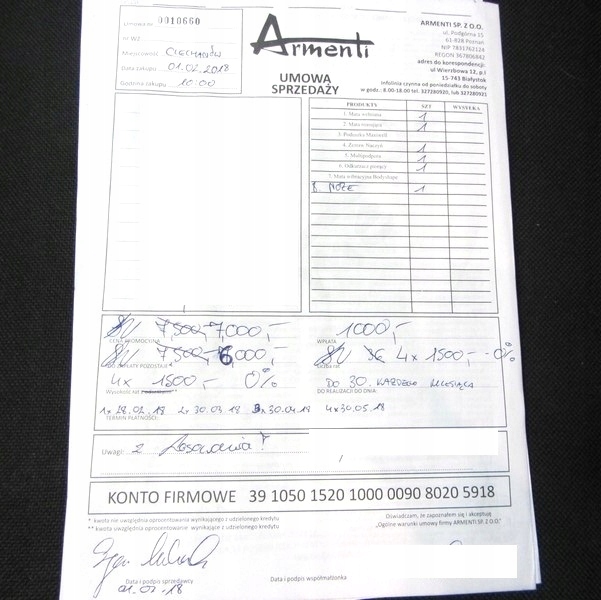 Umowa nr 0010660
nr WZ
Miejscowość CIECHANÓW
Data zakupu 01.02.2018
Godzina zakupu 10:00
Armenti
UMOWA
SPRZEDAŻY
ARMENTI SP. Z O.O.
ul. Podgórna 15
61-828 Poznań
NIP 7831762124
REGON 367806842
adres do korespondencji:
ul Wierzbowa 12, p.I
15-743 Białystok
infolinia czynna od poniedziałku do soboty
w godz.: 8.00-18.00 tel. 327280920, lub 327280921
PRODUKTY SZT WYSYŁKA
1. Mata wełniana 1
2. Mata masująca 1
3. Poduszka Maxwell
4. Zestaw Naczyń 1
5. Multipodpora 1
6. Odkurzacz piorący 1
7. Mata wibracyjna Bodyshape
8. NOŻE 1
7,500,- 7000,- 1000,-
CENA PROMOCYJNA WPŁATA
7500 6000,- 36 4x 1500,- 0%
DO ZAPŁATY POZOSTAJE liczba rat
4x 1500,- 0% DO 30. KAŻDEGO MIESIĄCA
Wysokość rat DO REALIZACJI DO DNIA:
1x 28.02.18 2x 30.03.18 3x 30.04.18 4x 30.05.18
TERMIN PŁATNOŚCI:
Uwagi: z losowania!
KONTO FIRMOWE 39 1050 1520 1000 0090 8020 5918
* kwota nie uwzględnia oprocentowania wynikającego z udzielonego kredytu
** kwota uwzględnia oprocentowanie wynikające z udzielonego kredytu
Oświadczam, że zapoznałem się i akceptuję
„Ogólne warunki umowy firmy ARMENTI SP. Z O.O."
Data i podpis sprzedawcy
01.02.18
Data i podpis współmałżonka